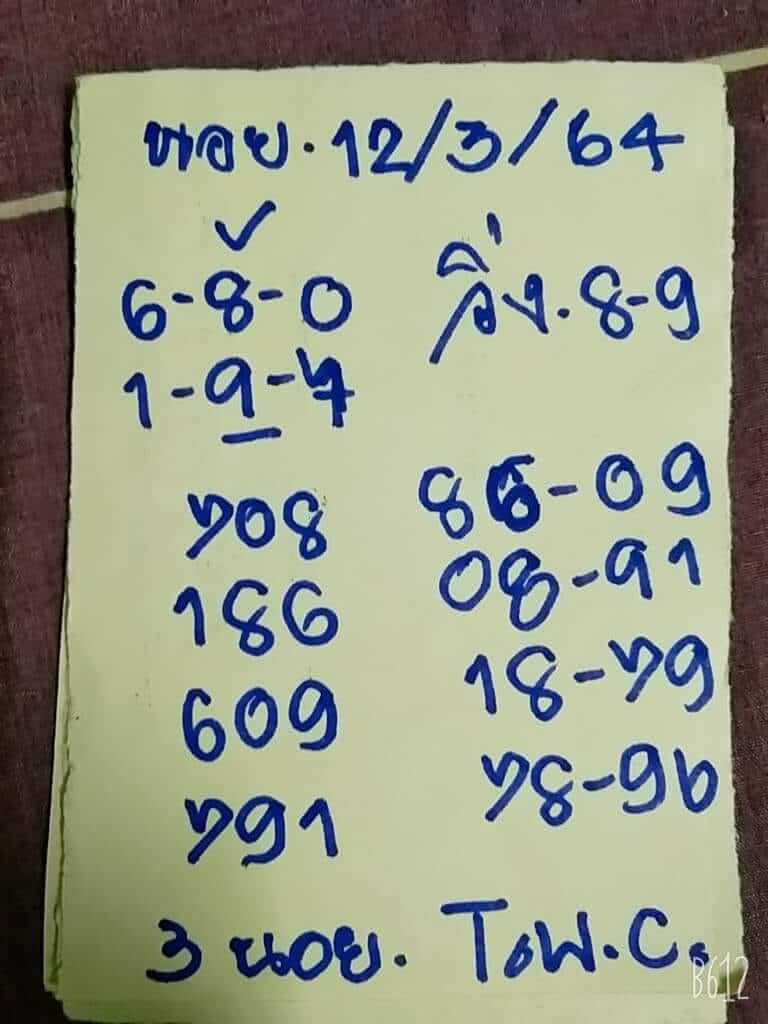 หอย. 12/3/64
6-8-0 วิ่ง. 8-9
1-9-7
708 86-09
186 08-91
609 18-79
791 78-96
3 นอย. T.W.C.
B612